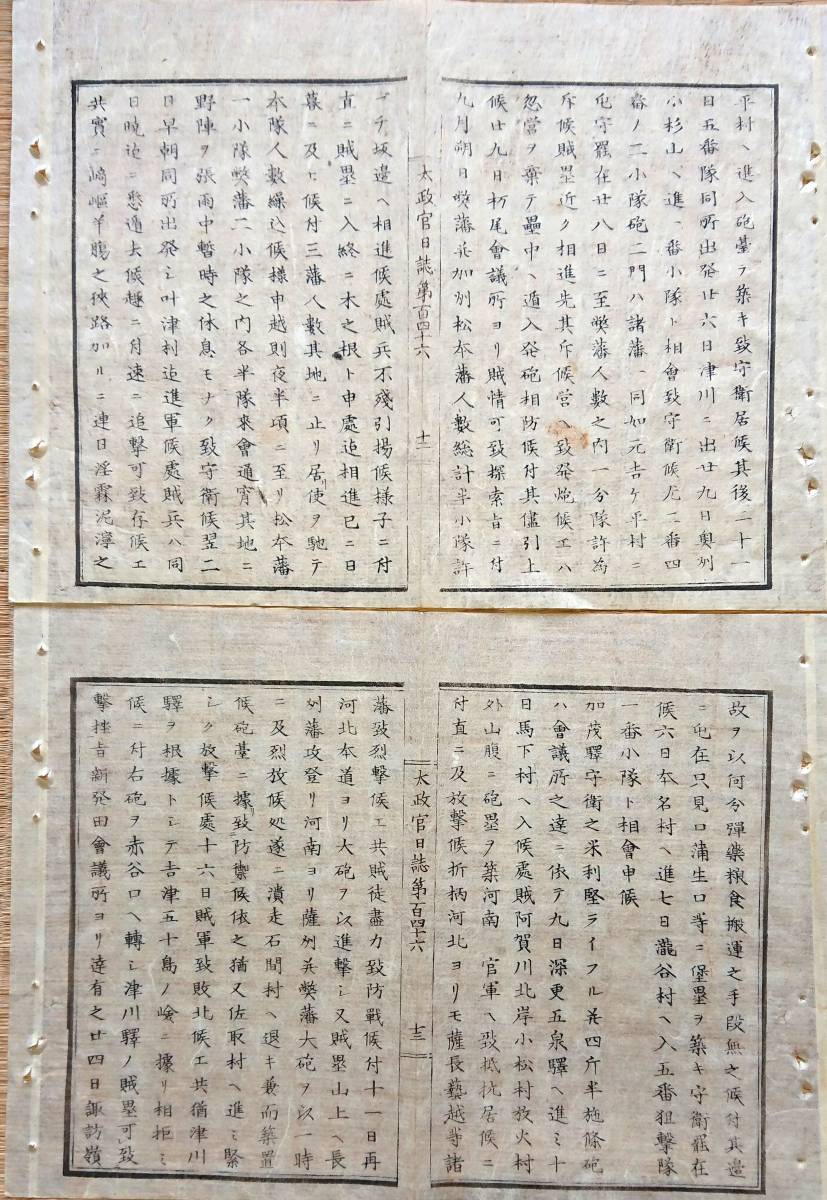 平村ヘ進入砲臺ヲ築キ致守衛居候其後二十一
日五番隊同所出発廿六日津川ニ出廿九日奥州
小杉山ヘ進一番小隊ト相會致守衛候尤二番四
番ノ二小隊砲二門ハ諸藩一同如元吉ケ平村ニ
屯守罷在廿八日ニ至弊藩人數之内一分隊許為
斥候賊塁近ク相進先其斥候営ヘ致発炮候エハ
忽営ヲ棄テ壘中ヘ遁入発砲相防候付其儘引上
候廿九日栃尾會議所ヨリ賊情可致探索旨ニ付
九月朔日弊藩并加州松本藩人數総計半小隊許
太政官日誌第百四十六
十二
ゴチ坂邊ヘ相進候處賊兵不殘引揚候様子ニ付
直ニ賊塁ニ入終ニ木之根ト申處迠相進已ニ日
暮ニ及ヒ候付三藩人數其地ニ止リ居使ヲ馳テ
本隊人數繰込候様申越則夜半頃ニ至リ松本藩
一小隊弊藩二小隊之内各半隊來會通宵其地ニ
野陣ヲ張雨中暫時之休息モナク致守衛候翌二
日早朝同所出発シ叶津村迠進軍候處賊兵ハ同
日暁迠ニ悉遁去候趣ニ付速ニ追撃可致存候エ
共實ニ崎嶇羊腸之狹路加ルニ連日淫霖泥濘之
故ヲ以何分彈藥粮食搬運之手段無之候付其邉
ニ屯在只見口蒲生口等ニ堡塁ヲ築キ守衛罷在
候六日本名村ヘ進七日瀧谷村ヘ入五番狙撃隊
一番小隊ト相會申候
加茂驛守衛之米利堅ライフル并四斤半施條砲
ハ會議所之達ニ依テ九日深更五泉驛ヘ進ミ十
日馬下村ヘ入候處賊阿賀川北岸小松村放火村
外山腹ニ砲塁ヲ築河南 官軍ヘ致抵抗居候ニ
付直ニ及放撃候折柄河北ヨリモ薩長藝越等諸
太政官日誌第百四十六
十三
藩致烈撃候エ共賊徒盡力致防戰候付十一日再
河北本道ヨリ大砲ヲ以進撃シ又賊塁山上ヘ長
州藩攻登リ河南ヨリ薩州并弊藩大砲ヲ以一時
ニ及烈放候処遂ニ潰走石間村ヘ退キ兼而築置
候砲臺ニ據致防禦候依之猶又佐取村ヘ進ミ緊
シク放撃候處十六日賊軍致敗北候エ共猶津川
驛ヲ根據トシテ吉津五十島ノ嶮ニ據リ相拒ミ
候ニ付右砲ヲ赤谷口ヘ轉シ津川驛ノ賊塁可致
撃挫旨新発田會議所ヨリ達有之廿四日諏訪嶺